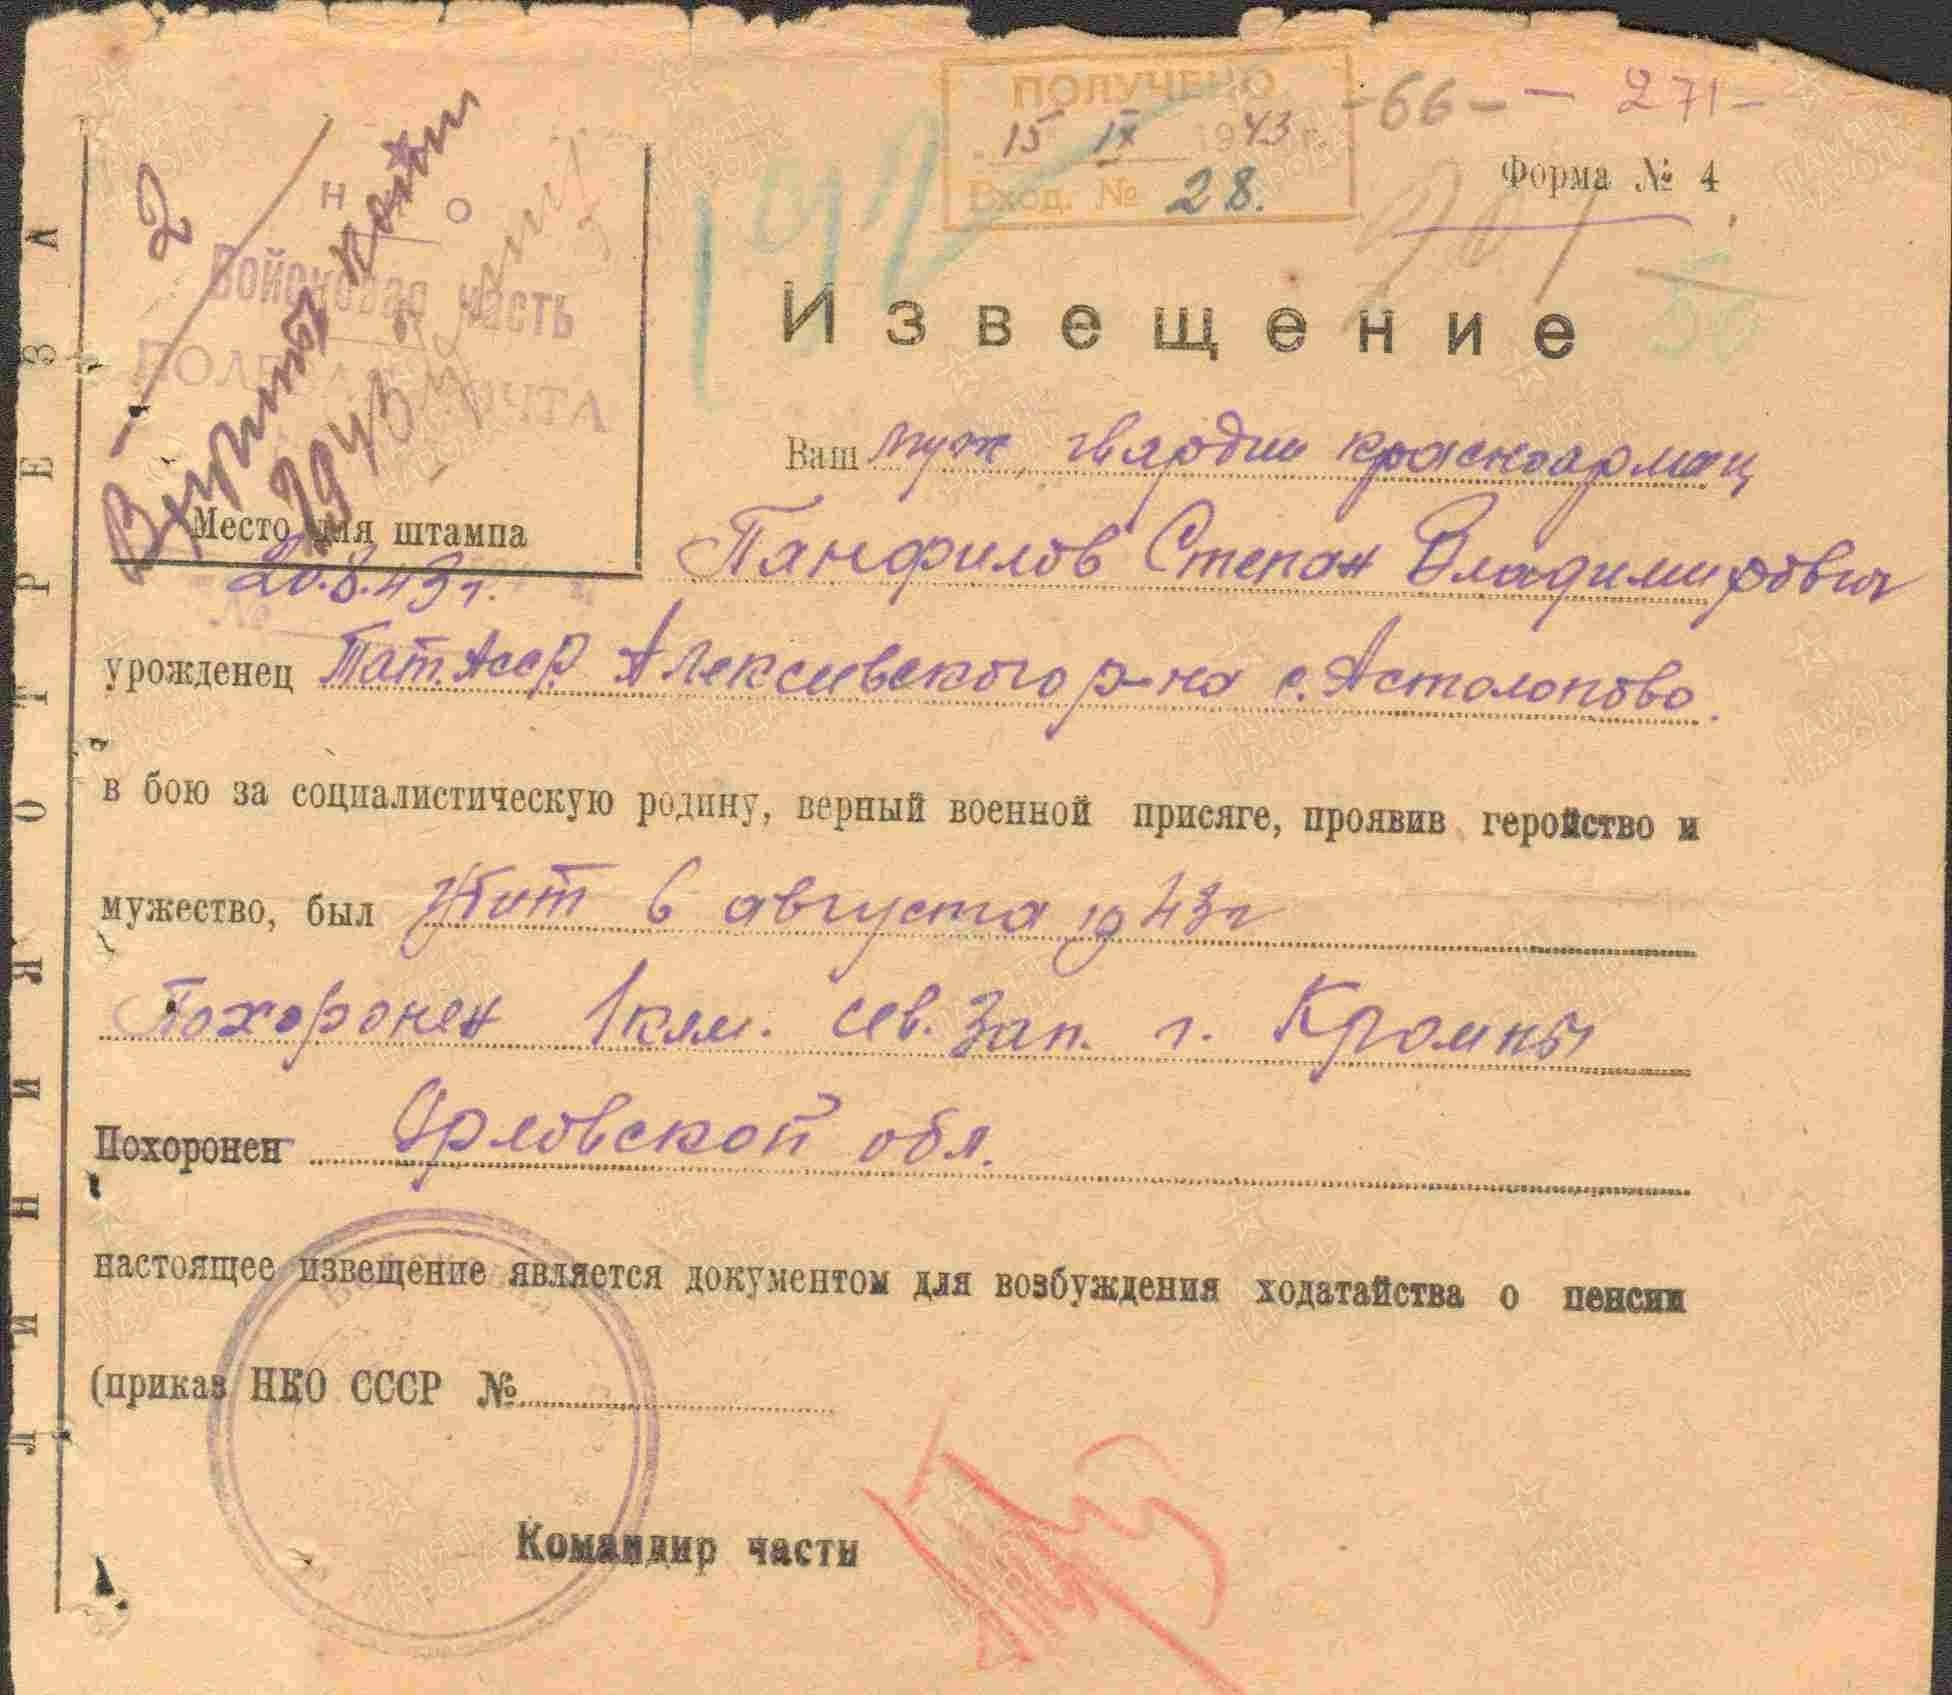 ПОЛУЧЕНО
15 IX 1943 г.
Вход. № 28.
-66- - 271-
Форма № 4
2
НКО
Войсковая часть
ПОЛЕВАЯ ПОЧТА
1943
Место для штампа
20.8.43 г.
№
Извещение
50
Ваш муж, гвардии красноармеец
Панфилов Степан Владимирович
урожденец Тат. Асср. Алексеевского р-на с. Астолопово.
в бою за социалистическую родину, верный военной присяге, проявив геройство и
мужество, был убит 6 августа 1943 г
Похоронен 1 клм. сев. зап. г. Кромны
Похоронен Орловской обл.
настоящее извещение является документом для возбуждения ходатайства о пенсии
(приказ НКО СССР №
Командир части
ЛИНИЯ ОТРЕЗА
ПАМЯТЬ НАРОДА